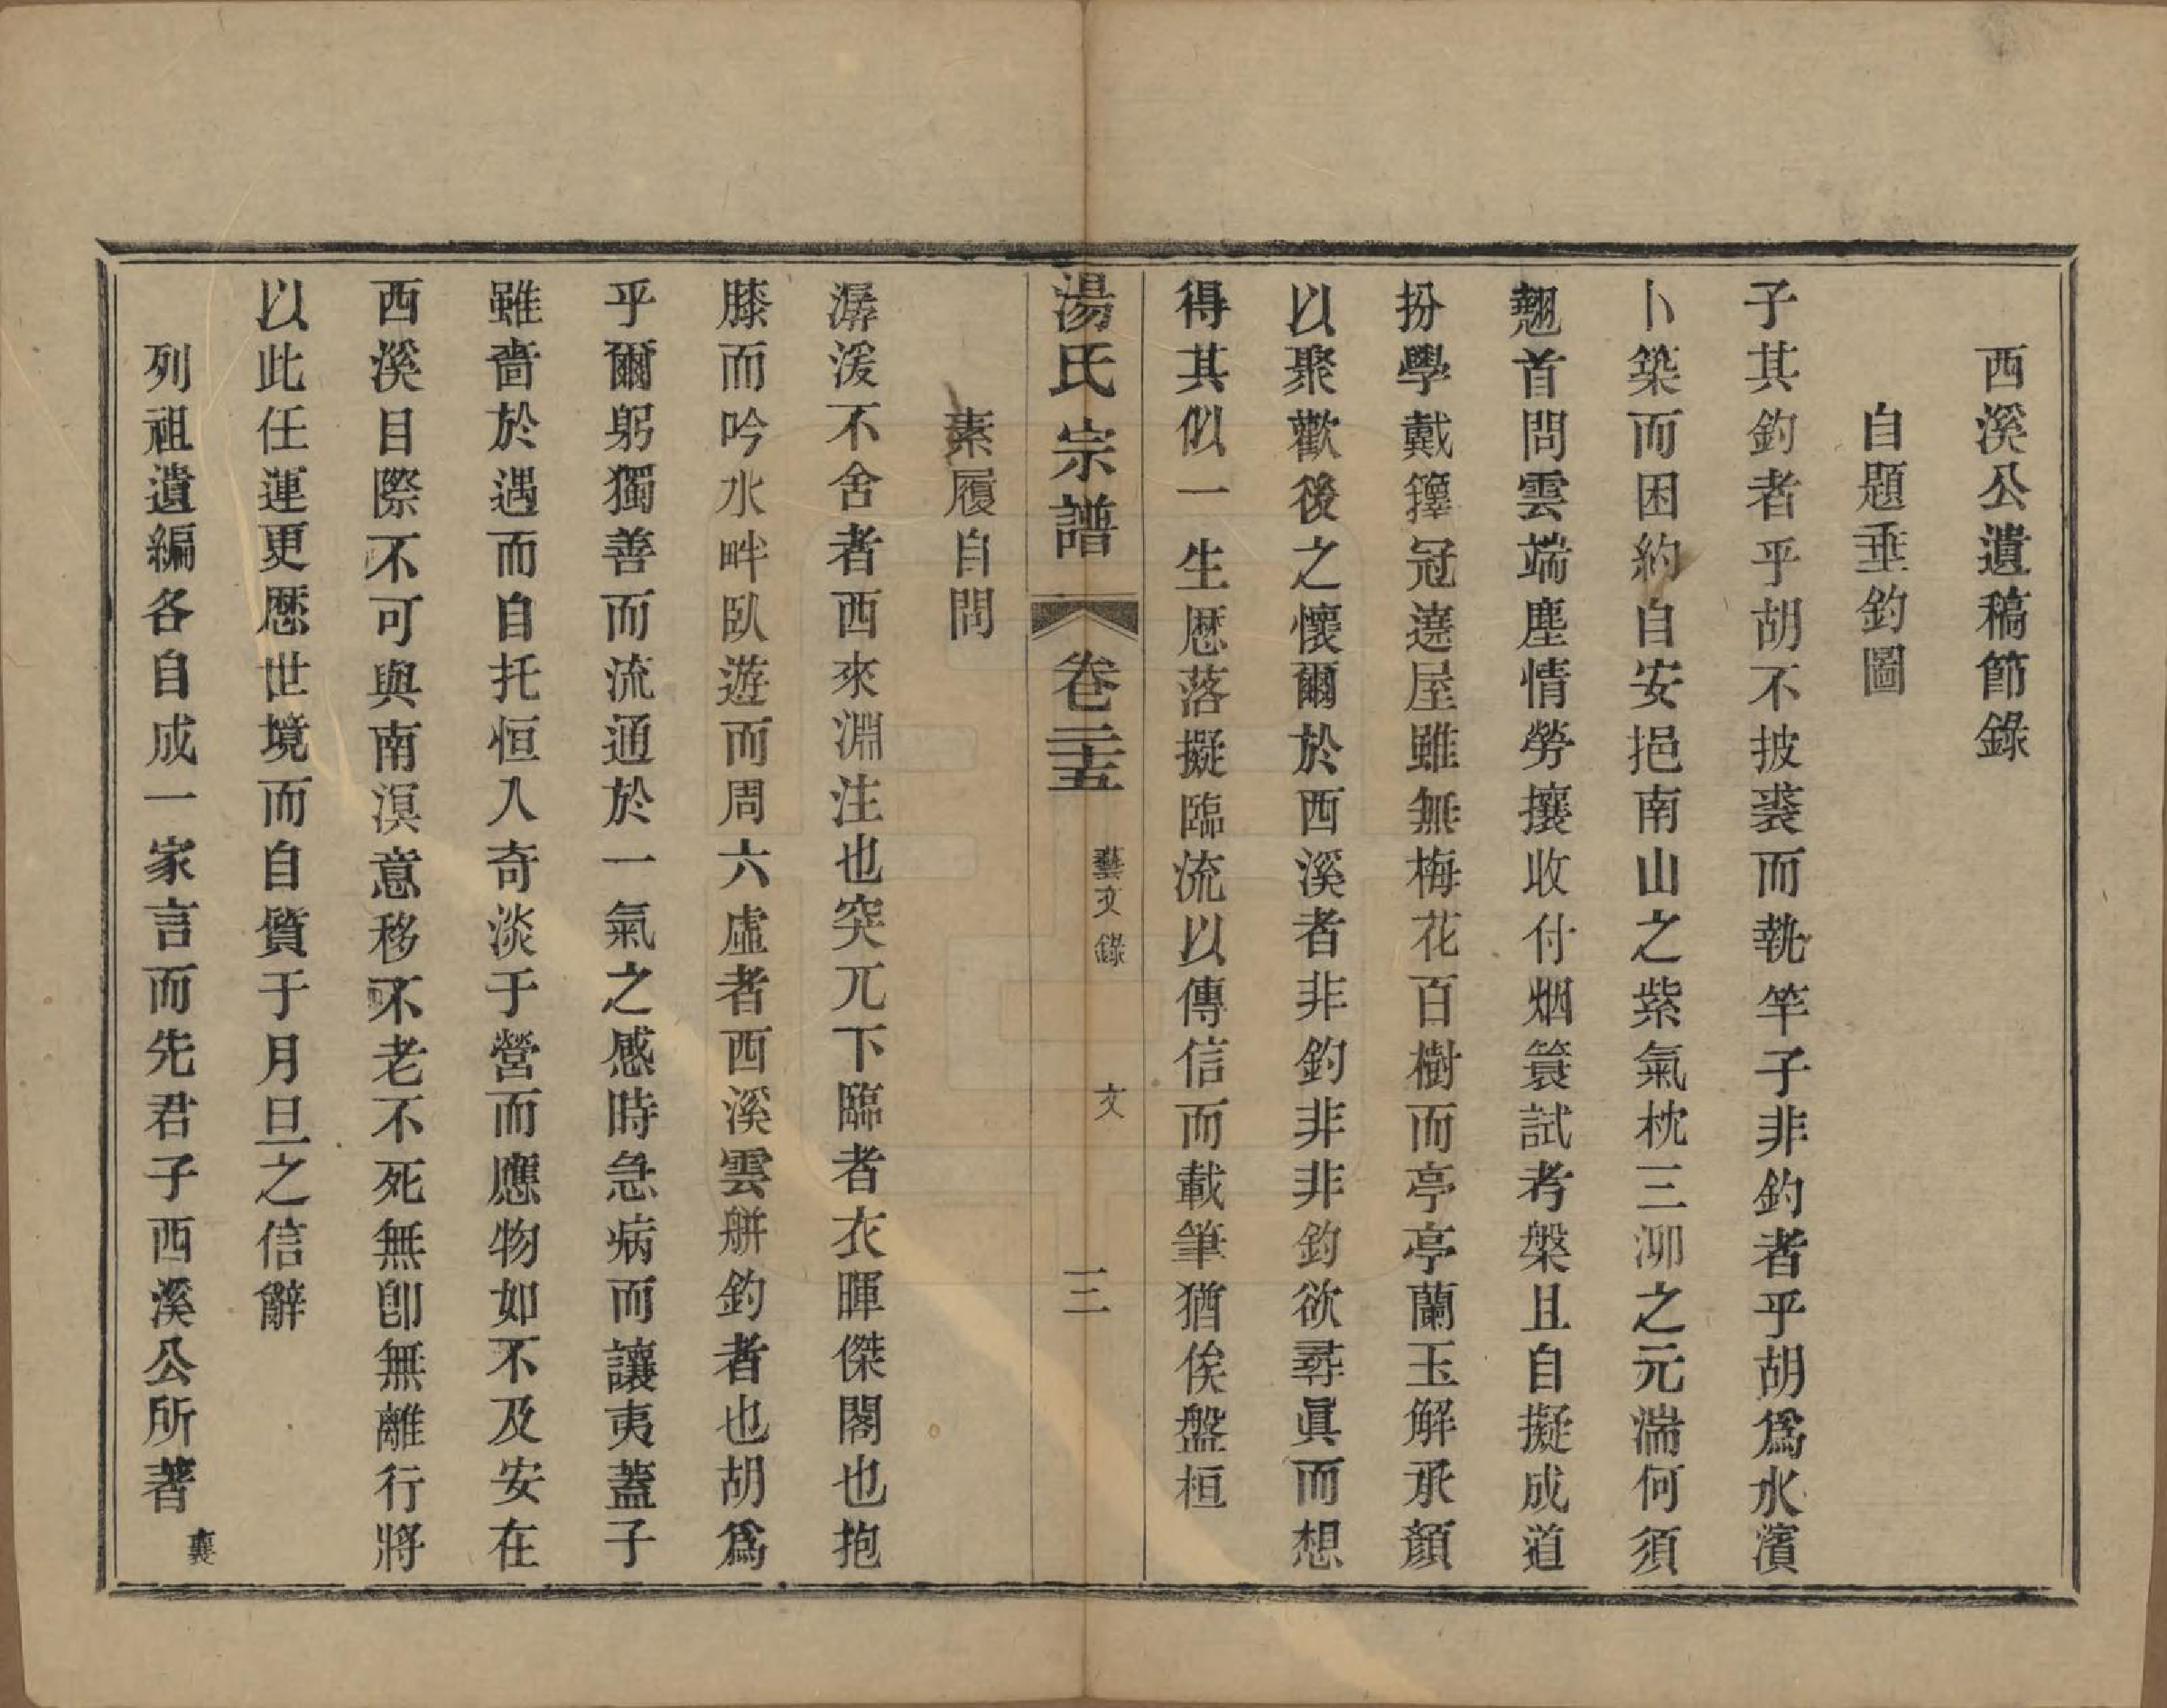 西溪公遺稿節錄
自題垂釣圖
子其釣者乎胡不披裘而執竿子非釣者乎胡爲水濱
卜築而困約自安挹南山之紫氣枕三泖之元湍何須
翹首問雲端塵情勞攘收付烟簑試考槃且自擬成道
扮學戴籜冠遶屋雖無梅花百樹而亭亭蘭玉解承顏
以聚歡後之懷爾於西溪者非釣非非釣欲尋眞而想
得其似一生歷落擬臨流以傳信而載筆猶俟盤桓
湯氏宗譜 卷二十五 藝文錄 文 三
素履自問
潺湲不舍者西來淵注也突兀下臨者衣暉傑閣也抱
膝而吟水畔臥遊而周六虛者西溪雲艇釣者也胡爲
乎爾躬獨善而流通於一氣之感時急病而讓夷蓋子
雖嗇於遇而自托恒入奇淡于營而應物如不及安在
西溪目際不可與南溟意移不老不死無卽無離行將
以此任運更歷世境而自質于月旦之信辭
列祖遺編各自成一家言而先君子西溪公所著
襄